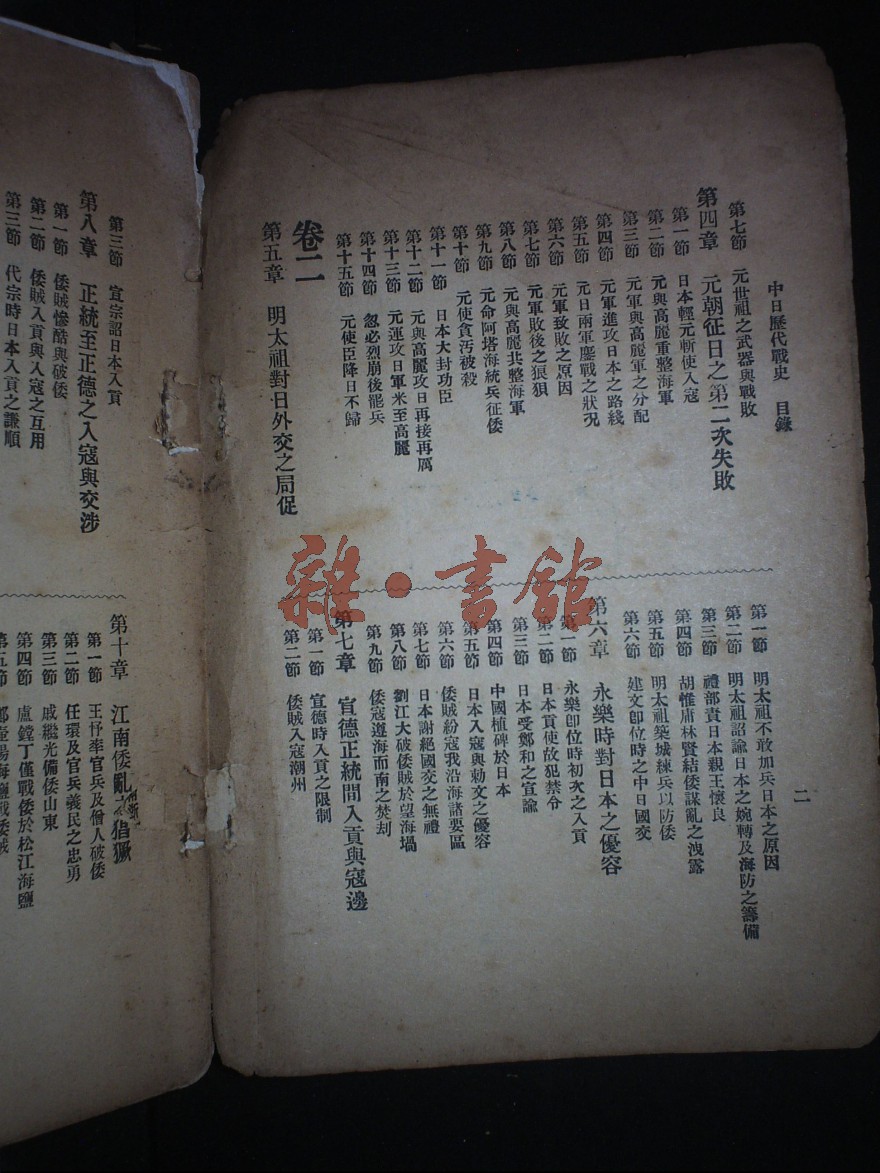 中日歷代戰史 目錄
二
第七節 元世祖之武器與戰敗
第四章 元朝征日之第二次失敗
第一節 日本輕元斬使入寇
第二節 元與高麗重整海軍
第三節 元軍與高麗軍之分配
第四節 元軍進攻日本之路綫
第五節 元日南軍鏖戰之狀况
第六節 元軍致敗之原因
第七節 元軍敗後之狼狽
第八節 元與高麗共整海軍
第九節 元命阿塔海統兵征倭
第十節 元使貪汚被殺
第十一節 日本大封功臣
第十二節 元與高麗攻日再接再厲
第十三節 元運攻日軍米至高麗
第十四節 忽必烈崩後罷兵
第十五節 元使臣降日不歸
卷二
第五章 明太祖對日外交之局促
第一節 明太祖不敢加兵日本之原因
第二節 明太祖詔諭日本之婉轉及海防之籌備
第三節 禮部責日本親王懷良
第四節 胡惟庸林賢結倭謀亂之洩露
第五節 明太祖築城練兵以防倭
第六節 建文卽位時之中日國交
第六章 永樂時對日本之優容
第一節 永樂卽位時初次之入貢
第二節 日本貢使故犯禁令
第三節 日本受鄭和之宣諭
第四節 中國植碑於日本
第五節 日本入寇與勅文之優容
第六節 倭賊紛寇我沿海諸要區
第七節 日本謝絕國交之無禮
第八節 劉江大破倭賊於望海堝
第九節 倭寇遵海而南之焚刦
第七章 宣德正統間入貢與寇邊
第一節 宣德時入貢之限制
第二節 倭賊入寇潮州
第三節 宣宗詔日本入貢
第八章 正統至正德之入寇與交涉
第一節 倭賊慘酷與破倭
第二節 倭賊入貢與入寇之互用
第三節 代宗時日本入貢之謙順
第十章 江南倭亂之猖獗
第一節 王忬率官兵及僧人破倭
第二節 任環及官兵義民之忠勇
第三節 戚繼光備倭山東
第四節 盧鏜丁僅戰倭於松江海鹽
第五節
雜·書館